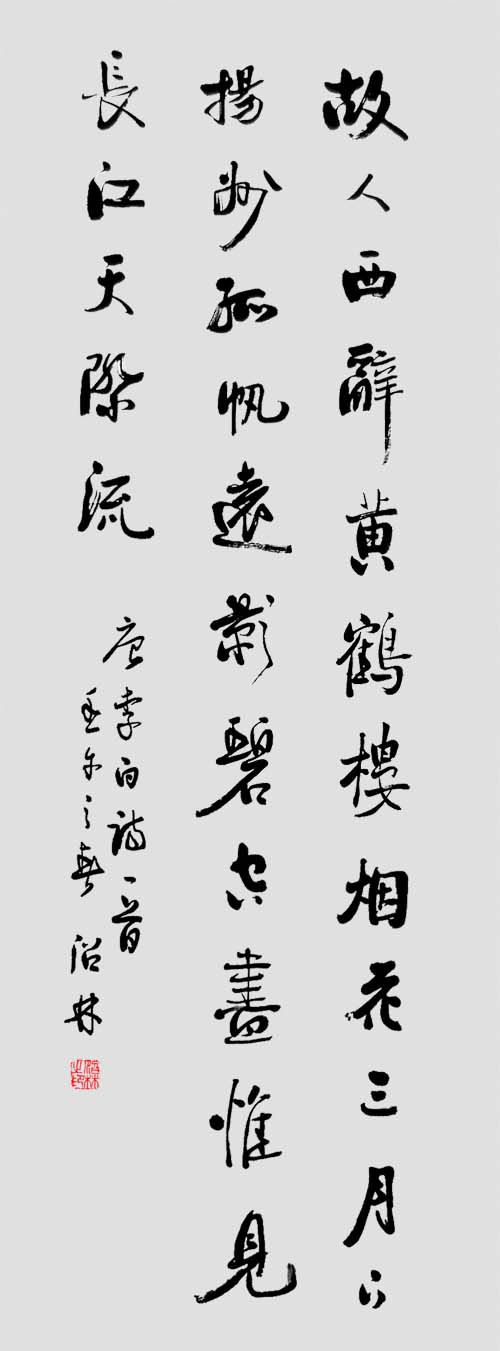 故人西辭黄鶴樓烟花三月下
揚州孤帆遠影碧空盡惟見
長江天際流
唐李白詩一首
之春 林